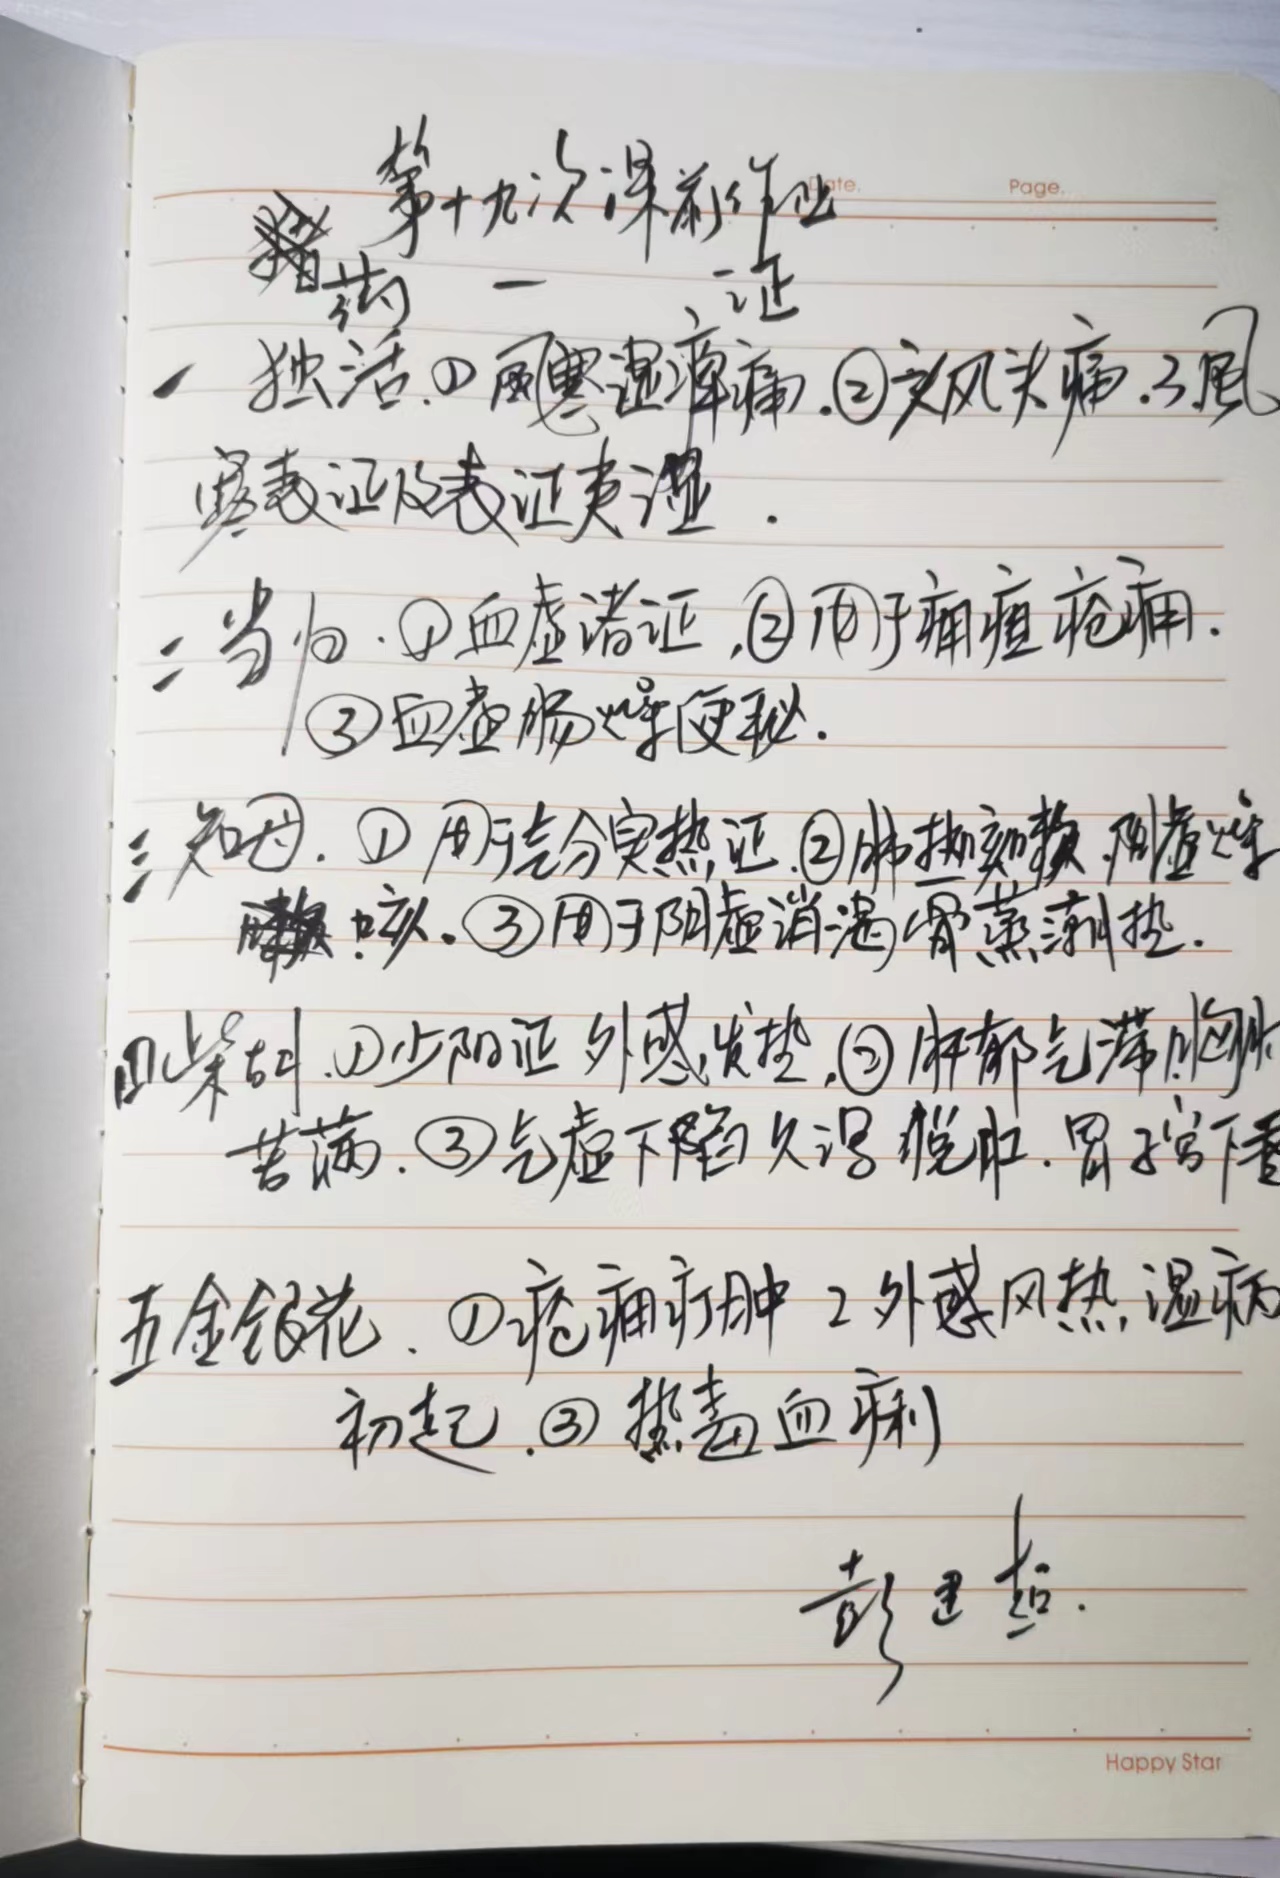 第十九次课前作业
Date. Page.
药 一 证
一 独活.①风寒湿痹痛.②头风头痛.3風
寒表证及表证夹湿.
二当归.①血虚诸证,②用于痈疽疮痈.
③血虚肠燥便秘.
三知母.①用于气分实热证.②肺热咳嗽.阴虚燥
咳.③用于阴虚消渴,骨蒸潮热.
四柴胡.①少阳证 外感发热,②肝郁气滞胸胁
苦满.③气虚下陷久泻脱肛.胃子宫下垂
五金银花.①疮痈疔肿 2外感风热,温病
初起.③热毒血痢
彭建哲.
Happy Star